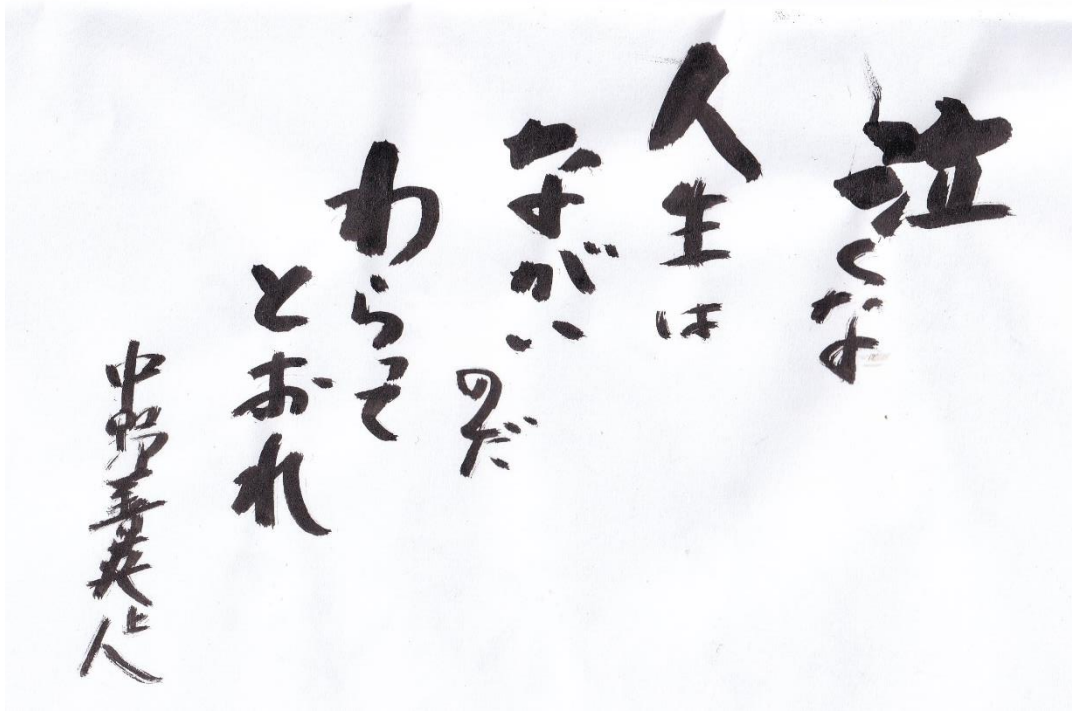 泣くな
人生は
ながい
のだ
わらって
とおれ
中
上人